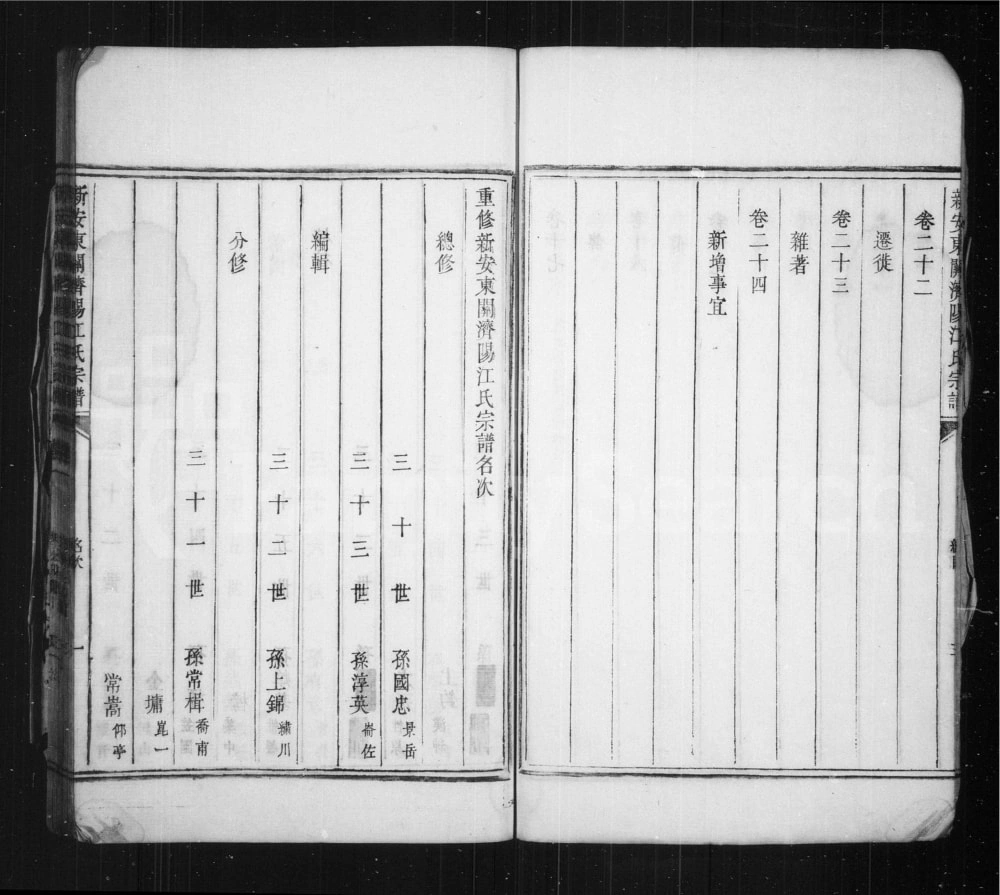 新安東關濟陽江氏宗譜
卷二十二
遷徙
卷二十三
雜著
卷二十四
新增事宜
重修新安東關濟陽江氏宗譜名次
總修
三十世孫國忠景岳
三十三世孫淳英
編輯
三十二世孫上錦繡川
分修
三十一世孫常楫喬甫
墉崑一
常嵩
新安東關濟陽江氏宗譜
名次
一